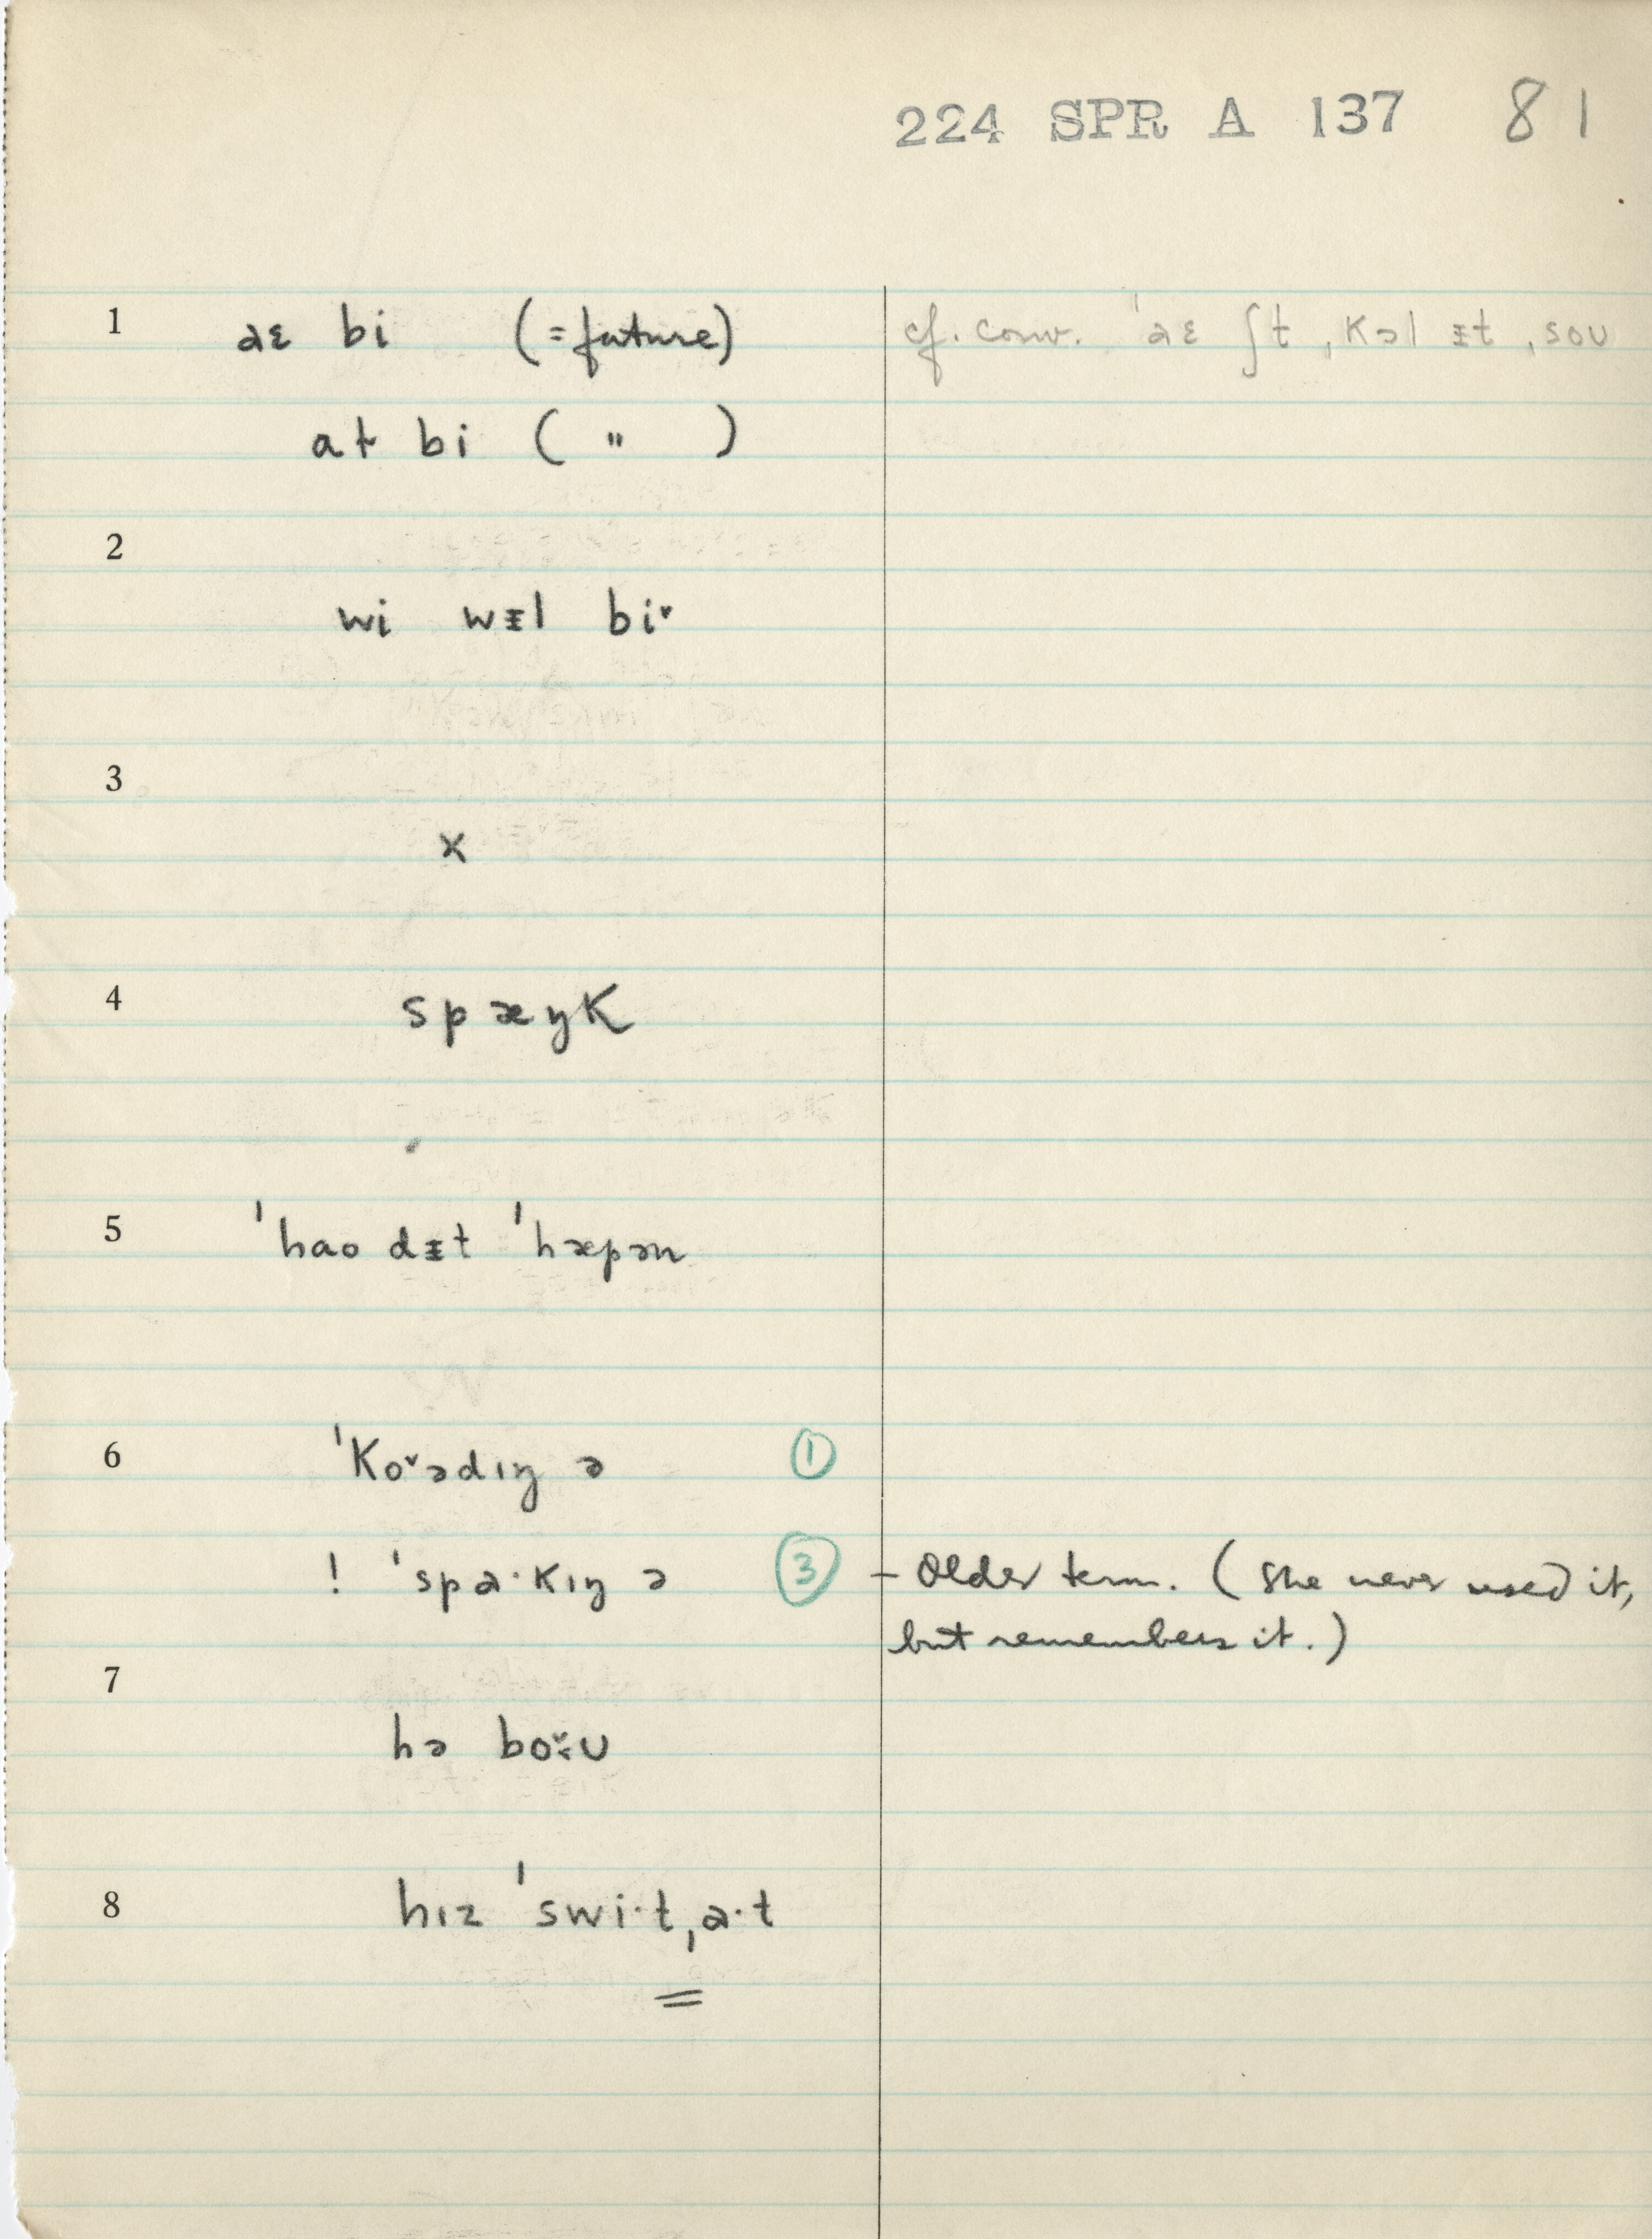 224 SPR A 137 81
1 aɛ bi (=future) cf. conv. ˈaɛ ʃt ˌkɔl ᵻt ˌsoʊ
at bi ( " )
2
wi wᵻl bi˅
3
x
4 spæŋk
5 ˈhao dᵻt ˈhæpən
6 ˈko˅ədɪŋ ə ①
! ˈspa·kɪŋ ə ③ – Older term. (She never used it,
but remembers it.)
7
hə bo˅˂ʊ
8 hɪz ˈswi·tˌa·t
=